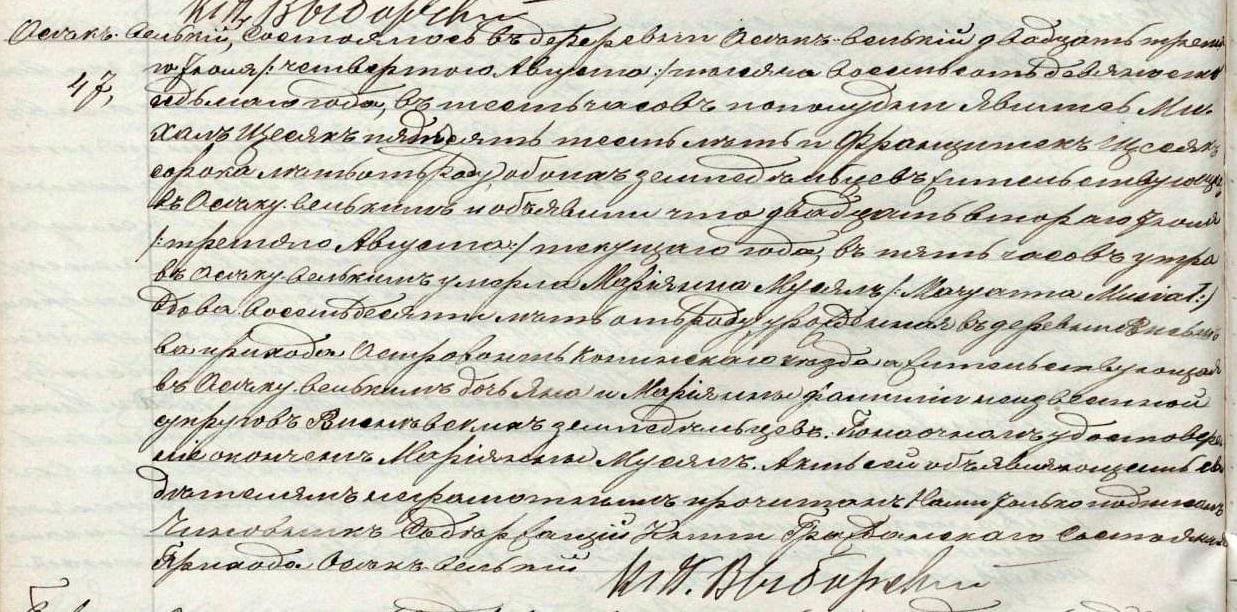 Кс. К. Выборский
Осѣкъ-Велькій, Состоялось въ деревни Осѣкъ-Велькій двадцать третья-
47, го Іюля /: четвертого Августа :/ тысяча восемьсотъ девяносто
седьмаго года, въ шесть часовъ по полудни явились Ми-
халъ Щесякъ пятьдесятъ шесть лѣтъ и Францишекъ Щесякъ
сорока лѣтъ отъ роду, обоихъ земледѣльцевъ жительствующихъ
въ Осѣку-Велькимъ и объявили что двадцать второго Іюля
/: третяго Августа :/ текущаго года, въ пять часовъ утра
въ Осѣку-Велькимъ умерла Маріянна Мусялъ /: Maryanna Musiał :/
вдова восемьдесятъ лѣтъ отъ роду урожденная въ деревни
ва прихода Островонтъ Конинскаго уѣзда а жительствующая
въ Осѣку-Велькимъ дочь Яна и Маріянны фамиліи неизвестной
супруговъ земледѣльцевъ. По наочномъ удостовѣре-
ніе окончены Маріянны Мусялъ. Актъ сей объявляющемъ сви-
дѣтелямъ неграмотнымъ прочитанъ Нами только подписанъ
Чиновникъ Содержащій Книги Гражданскаго Состоянія
Прихода Осѣкъ-Велькій
Кс. К. Выборский